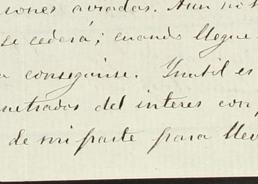 ciones aviadas. Aun no s
se cederá; cuando llegue
a conseguirse. Inutil es
netrados del interes con
de mi parte para llev